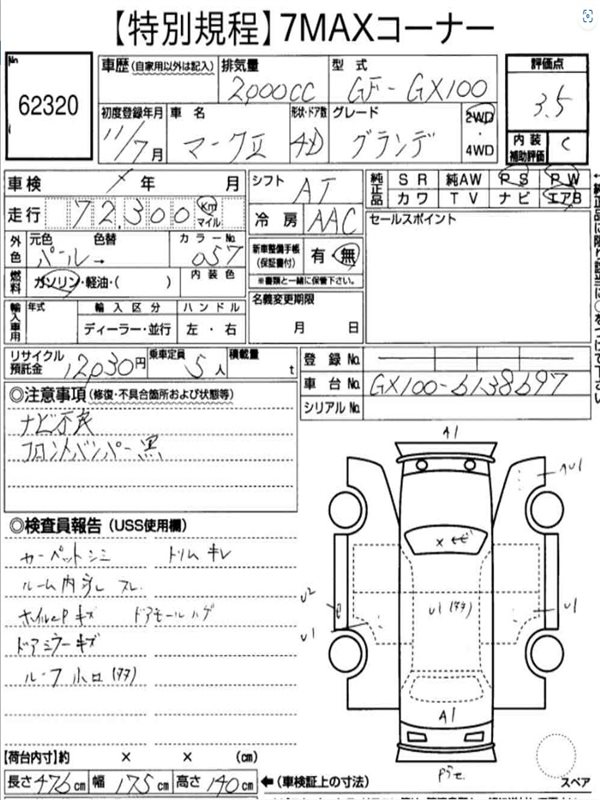 【特別規程】7MAXコーナー
No.
62320
車歴(自家用以外は記入)
排気量
2,000CC
型式
GF-GX100
評価点
3.5
初度登録年月
11/7月
車名
マークⅡ
形状・ドア数
4D
グレード
グランデ
2WD
・
4WD
内装
補助評価
C
車検
年 月
走行
72,300
Km
マイル
シフト
AT
冷房
AAC
純正品
SR 純AW PS PW
カワ TV ナビ エアB
セールスポイント
外色
元色 → 色替
パール →
カラーNo.
057
新車整備手帳
(保証書付)
有・無
※書類と一緒に保管下さい。
燃料
ガソリン・軽油・( )
内装色
名義変更期限
月 日
輸入車用
年式
輸入区分
ディーラー・並行
ハンドル
左・右
リサイクル
預託金
12030円
乗車定員
5人
積載量
t
登録No.
車台No.
GX100-6138697
シリアルNo.
◎注意事項(修復・不具合箇所および状態等)
ナビ不良
フロントバンパー黒
◎検査員報告(USS使用欄)
カーペットシミ トリムキレ
ルーム内汚レ スレ
ホイルcapキズ ドアモールハゲ
ドアミラーキズ
ルーフ
A1
U1
U2
U1
U1
A1
【荷台内寸】約 × × (cm)
長さ476cm 幅175cm 高さ140cm
←(車検証上の寸法)
スペア